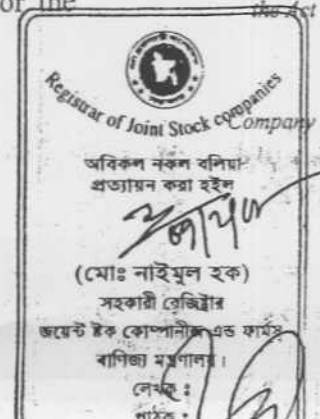 or the
the Act
Registrar of Joint Stock Companies
Company
অবিকল নকল বলিয়া
প্রত্যায়ন করা হইল
(মোঃ নাইমুল হক)
সহকারী রেজিষ্ট্রার
জয়েন্ট ষ্টক কোম্পানীজ এন্ড ফার্মস
বাণিজ্য মন্ত্রণালয়।
লেখক :
পাঠক :